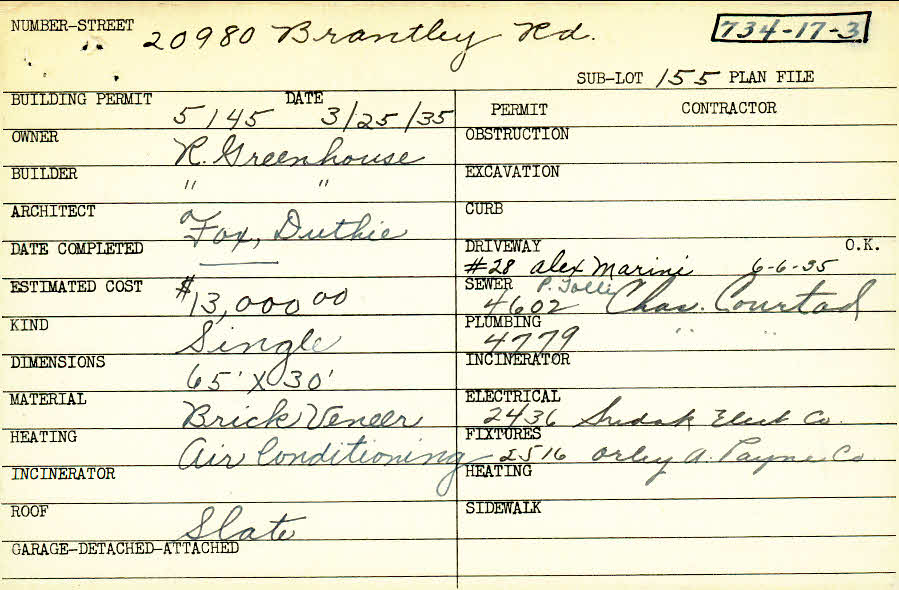 NUMBER-STREET 20980 Brantley Rd. 734-17-3
SUB-LOT 155 PLAN FILE
BUILDING PERMIT 5145 DATE 3/25/35
PERMIT CONTRACTOR
OWNER R. Greenhouse
OBSTRUCTION
BUILDER " "
EXCAVATION
ARCHITECT Fox, Duthie
CURB
DATE COMPLETED
DRIVEWAY #28 Alex Marini 6-6-35 O.K.
ESTIMATED COST $13,000 00
SEWER 4602 P. Chas. Courtad
KIND Single
PLUMBING 4779 " "
DIMENSIONS 65' X 30'
INCINERATOR
MATERIAL Brick Veneer
ELECTRICAL 2436 Elect Co.
HEATING Air Conditioning
FIXTURES 2516 Orley A. Payne Co
INCINERATOR
HEATING
ROOF Slate
SIDEWALK
GARAGE-DETACHED-ATTACHED